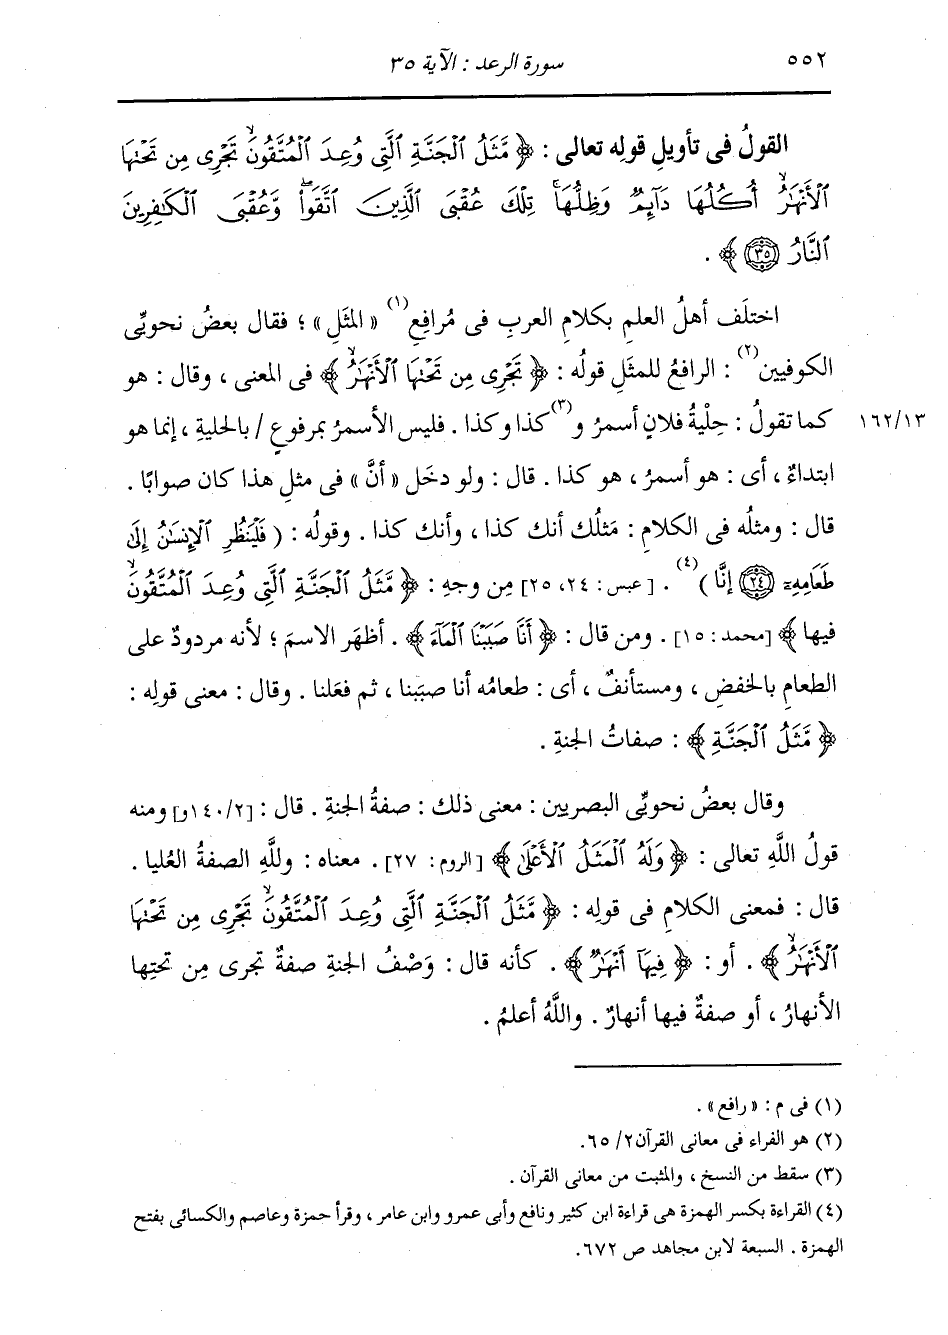 ٥٥٢
سورة الرعد : الآية ٣٥
القولُ فى تأويلِ قولِه تعالى : ﴿ مَّثَلُ ٱلْجَنَّةِ ٱلَّتِى وُعِدَ ٱلْمُتَّقُونَۖ تَجْرِى مِن تَحْتِهَا
ٱلْأَنْهَٰرُۖ أُكُلُهَا دَآئِمٌ وَظِلُّهَاۚ تِلْكَ عُقْبَى ٱلَّذِينَ ٱتَّقَواۖ وَّعُقْبَى ٱلْكَٰفِرِينَ
ٱلنَّارُ ﴿٣٥﴾ ﴾ .
اختلَف أهلُ العلمِ بكلامِ العربِ فى مُرافِعِ(١) « المثَلِ » ؛ فقال بعضُ نحويِّى
الكوفيين(٢) : الرافعُ للمثَلِ قولُه : ﴿ تَجْرِى مِن تَحْتِهَا ٱلْأَنْهَٰرُۖ ﴾ فى المعنى ، وقال : هو
كما تقولُ : حِلْيةُ فلانٍ أسمرُ و(٣)كذا وكذا . فليس الأسمرُ بمرفوعٍ / بالحليةِ ، إنما هو
١٦٢/١٣
ابتداءٌ ، أى : هو أسمرُ ، هو كذا . قال : ولو دخَل « أنَّ » فى مثلِ هذا كان صوابًا .
قال : ومثلُه فى الكلامِ : مَثلُك أنك كذا ، وأنك كذا . وقولُه : ( فَلْيَنظُرِ ٱلْإِنسَٰنُ إِلَىٰ
طَعَامِهِۦ ﴿٢٤﴾ إِنَّا )(٤) . [عبس: ٢٤، ٢٥] مِن وجهِ : ﴿ مَّثَلُ ٱلْجَنَّةِ ٱلَّتِى وُعِدَ ٱلْمُتَّقُونَۖ
فيها ﴾ [محمد: ١٥] . ومن قال : ﴿ أَنَّا صَبَبْنَا ٱلْمَآءَ ﴾ . أظهَر الاسمَ ؛ لأنه مردودٌ على
الطعامِ بالخفضِ ، ومستأنفٌ ، أى : طعامُه أنا صبَبنا ، ثم فعَلنا . وقال : معنى قولِه :
﴿ مَّثَلُ ٱلْجَنَّةِ ﴾ : صفاتُ الجنةِ .
وقال بعضُ نحويِّى البصريين : معنى ذلك : صفةُ الجنةِ . قال : [١٤٠/٢و] ومنه
قولُ اللَّهِ تعالى : ﴿ وَلَهُ ٱلْمَثَلُ ٱلْأَعْلَىٰ ﴾ [الروم: ٢٧] . معناه : وللَّهِ الصفةُ العُليا .
قال : فمعنى الكلامِ فى قولِه : ﴿ مَّثَلُ ٱلْجَنَّةِ ٱلَّتِى وُعِدَ ٱلْمُتَّقُونَۖ تَجْرِى مِن تَحْتِهَا
ٱلْأَنْهَٰرُۖ ﴾ . أو : ﴿ فِيهَآ أَنْهَٰرٌ ﴾ . كأنه قال : وَصْفُ الجنةِ صفةٌ تجرى مِن تحتِها
الأنهارُ ، أو صفةٌ فيها أنهارٌ . واللَّهُ أعلمُ .
(١) فى م : «رافع» .
(٢) هو الفراء فى معانى القرآن ٢/ ٦٥.
(٣) سقط من النسخ ، والمثبت من معانى القرآن .
(٤) القراءة بكسر الهمزة هى قراءة ابن كثير ونافع وأبى عمرو وابن عامر ، وقرأ حمزة وعاصم والكسائى بفتح
الهمزة . السبعة لابن مجاهد ص ٦٧٢.